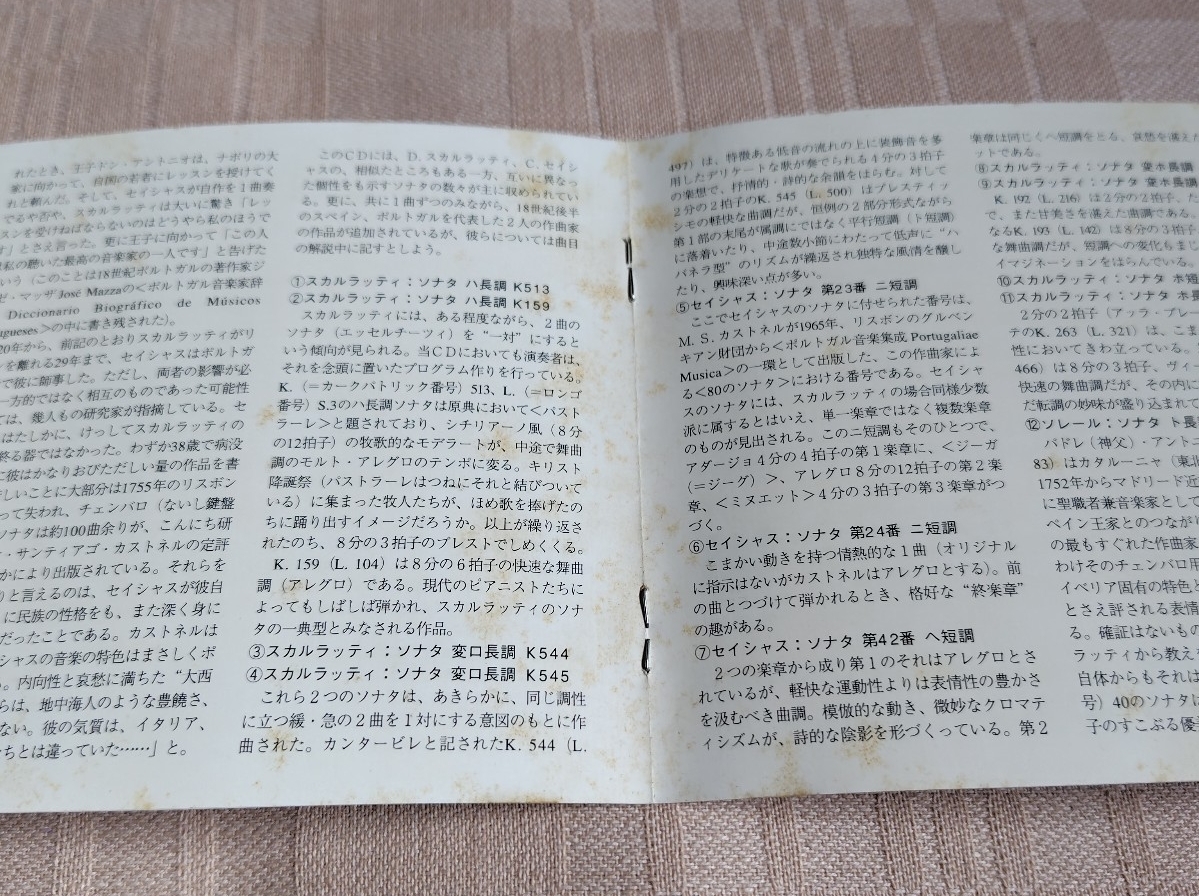 れたとき、王子ドン・アントニオは、ナポリの大
家に向かって、自国の若者にレッスンを授けてく
れと頼んだ。そして、セイシャスが自作を1曲奏
でるや否や、スカルラッティは大いに驚き「レッ
スンを受けねばならないのはどうやら私のほうで
す」とさえ言った。更に王子に向かって「この人
は私の聴いた最高の音楽家の一人です」と告げた
いう（このことは18世紀ポルトガルの著作家ジ
ゼ・マッザJosé Mazzaの＜ポルトガル音楽家辞
Diccionario Biográfico de Músicos
ugueses＞の中に書き残された）。
20年から、前記のとおりスカルラッティがリ
ンを離れる29年まで、セイシャスはポルトガ
で彼に師事した。ただし、両者の影響が必
一方的ではなく相互のものであった可能性
ては、幾人もの研究家が指摘している。セ
はたしかに、けっしてスカルラッティの
終る器ではなかった。わずか38歳で病没
に彼はかなりおびただしい量の作品を書
しいことに大部分は1755年のリスボン
って失われ、チェンバロ（ないし鍵盤
ソナタは約100曲余りが、こんにち研
ー・サンティアゴ・カストネルの定評
かにより出版されている。それらを
りと言えるのは、セイシャスが彼自
に民族の性格をも、また深く身に
だったことである。カストネルは
シャスの音楽の特色はまさしくポ
。内向性と哀愁に満ちた“大西
らは、地中海人のような豊饒さ、
ない。彼の気質は、イタリア、
ちとは違っていた……」と。
このCDには、D. スカルラッティ、C. セイシ
ャスの、相似たところもある一方、互いに異なっ
た個性をも示すソナタの数々が主に収められてい
る。更に、共に1曲ずつのみながら、18世紀後半
のスペイン、ポルトガルを代表した2人の作曲家
の作品が追加されているが、彼らについては曲目
の解説中に記すとしよう。
①スカルラッティ：ソナタ ハ長調 K513
②スカルラッティ：ソナタ ハ長調 K159
スカルラッティには、ある程度ながら、2曲の
ソナタ（エッセルチーツィ）を “一対” にすると
いう傾向が見られる。当CDにおいても演奏者は、
それを念頭に置いたプログラム作りを行っている。
K.（=カークパトリック番号）513、L.（=ロンゴ
番号）S.3のハ長調ソナタは原典において＜パスト
ラーレ＞と題されており、シチリアーノ風（8分
の12拍子）の牧歌的なモデラートが、中途で舞曲
調のモルト・アレグロのテンポに変る。キリスト
降誕祭（パストラーレはつねにそれと結びついて
いる）に集まった牧人たちが、ほめ歌を捧げたの
ちに踊り出すイメージだろうか。以上が繰り返さ
れたのち、8分の3拍子のプレストでしめくくる。
K. 159（L. 104）は8分の6拍子の快速な舞曲
調（アレグロ）である。現代のピアニストたちに
よってもしばしば弾かれ、スカルラッティのソナ
タの一典型とみなされる作品。
③スカルラッティ：ソナタ 変ロ長調 K544
④スカルラッティ：ソナタ 変ロ長調 K545
これら2つのソナタは、あきらかに、同じ調性
に立つ緩・急の2曲を1対にする意図のもとに作
曲された。カンタービレと記されたK. 544（L.
497）は、特徴ある低音の流れの上に装飾音を多
用したデリケートな歌が奏でられる4分の3拍子
の楽想で、抒情的・詩的な余韻をはらむ。対して
2分の2拍子のK. 545（L. 500）はプレスティッ
シモの軽快な曲調だが、恒例の2部分形式ながら
第1部の末尾が属調にではなく平行短調（ト短調）
に落着いたり、中途数小節にわたって低声に “ハ
バネラ型” のリズムが繰返され独特な風情を醸し
たり、興味深い点が多い。
⑤セイシャス：ソナタ 第23番 ニ短調
ここでセイシャスのソナタに付せられた番号は、
M. S. カストネルが1965年、リスボンのグルベン
キアン財団から＜ポルトガル音楽集成 Portugaliae
Musica＞の一環として出版した、この作曲家によ
る＜80のソナタ＞における番号である。セイシャ
スのソナタには、スカルラッティの場合同様少数
派に属するとはいえ、単一楽章ではなく複数楽章
のものが見出される。このニ短調もそのひとつで、
アダージョ4分の4拍子の第1楽章に、＜ジーガ
（=ジーグ）＞、アレグロ8分の12拍子の第2楽
章、＜ミヌエット＞4分の3拍子の第3楽章がつ
づく。
⑥セイシャス：ソナタ 第24番 ニ短調
こまかい動きを持つ情熱的な1曲（オリジナル
に指示はないがカストネルはアレグロとする）。前
の曲とつづけて弾かれるとき、格好な “終楽章”
の趣がある。
⑦セイシャス：ソナタ 第42番 ヘ短調
2つの楽章から成り第1のそれはアレグロとさ
れているが、軽快な運動性よりは表情性の豊かさ
を汲むべき曲調。模倣的な動き、微妙なクロマテ
ィシズムが、詩的な陰影を形づくっている。第2
楽章は同じくヘ短調をとる、哀愁を湛え
ットである。
⑧スカルラッティ：ソナタ 変ホ長調
⑨スカルラッティ：ソナタ 変ホ長調
K. 192（L. 216）は2分の2拍子、た
で、また甘美さを湛えた曲調である。
なるK. 193（L. 142）は8分の3拍子
な舞曲調だが、短調への変化もまじ
イマジネーションをはらんでいる。
⑩スカルラッティ：ソナタ ホ短
⑪スカルラッティ：ソナタ ホ長
2分の2拍子（アッラ・ブレー
テのK. 263（L. 321）は、こま
性においてきわ立っている。
466）は8分の3拍子、ヴィー
快速の舞曲調だが、その内に
だ転調の妙味が盛り込まれて
⑫ソレール：ソナタ ト長
パドレ（神父）・アント
83）はカタルーニャ（東北
1752年からマドリード近
に聖職者兼音楽家として
ペイン王家とのつながり
の最もすぐれた作曲家
わけそのチェンバロ用
イベリア固有の特色
とさえ評される表情
る。確証はないもの
ラッティから教えを
自体からもそれは
号）40のソナタは
子のすこぶる優